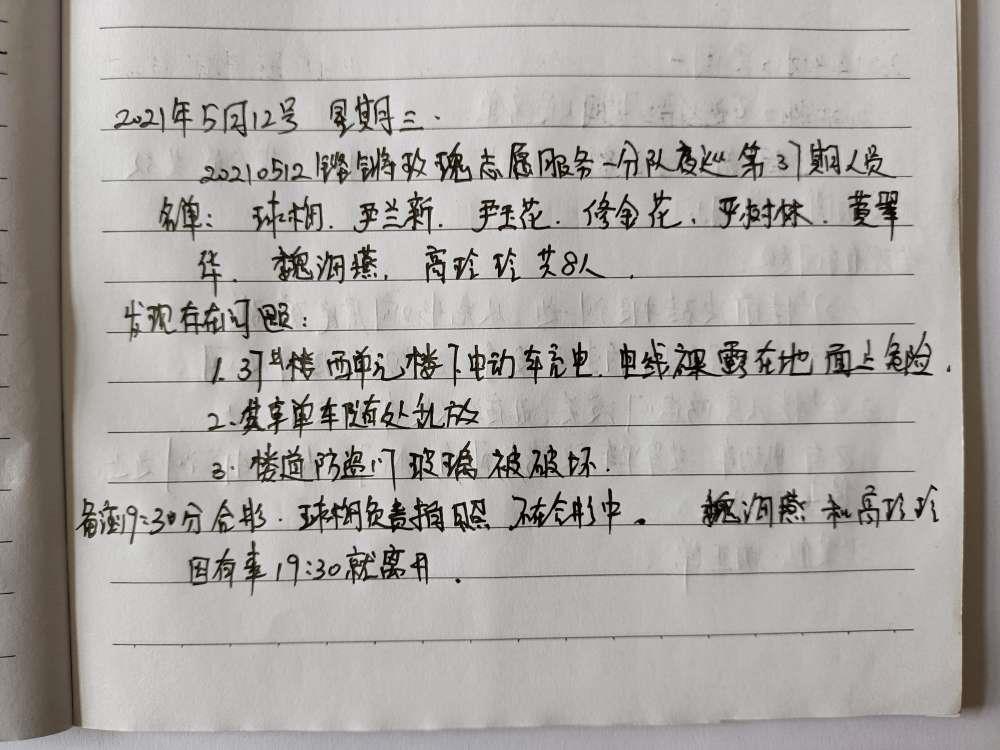 2021年5月12号 星期三.
20210512铿锵玫瑰志愿服务一分队夜巡第37期人员
名单: 球梅. 尹兰新. 尹玉花. 修金花. 尹树林. 黄翠
华. 魏海燕. 高珍珍共8人.
发现存在问题:
1. 37号楼西单元楼下电动车充电. 电线裸露在地面上危险.
2. 共享单车随处乱放
3. 楼道防盗门玻璃被破坏.
备注19:30分合影. 球梅负责拍照不在合影中。 魏海燕和高珍珍
因有事19:30就离开.